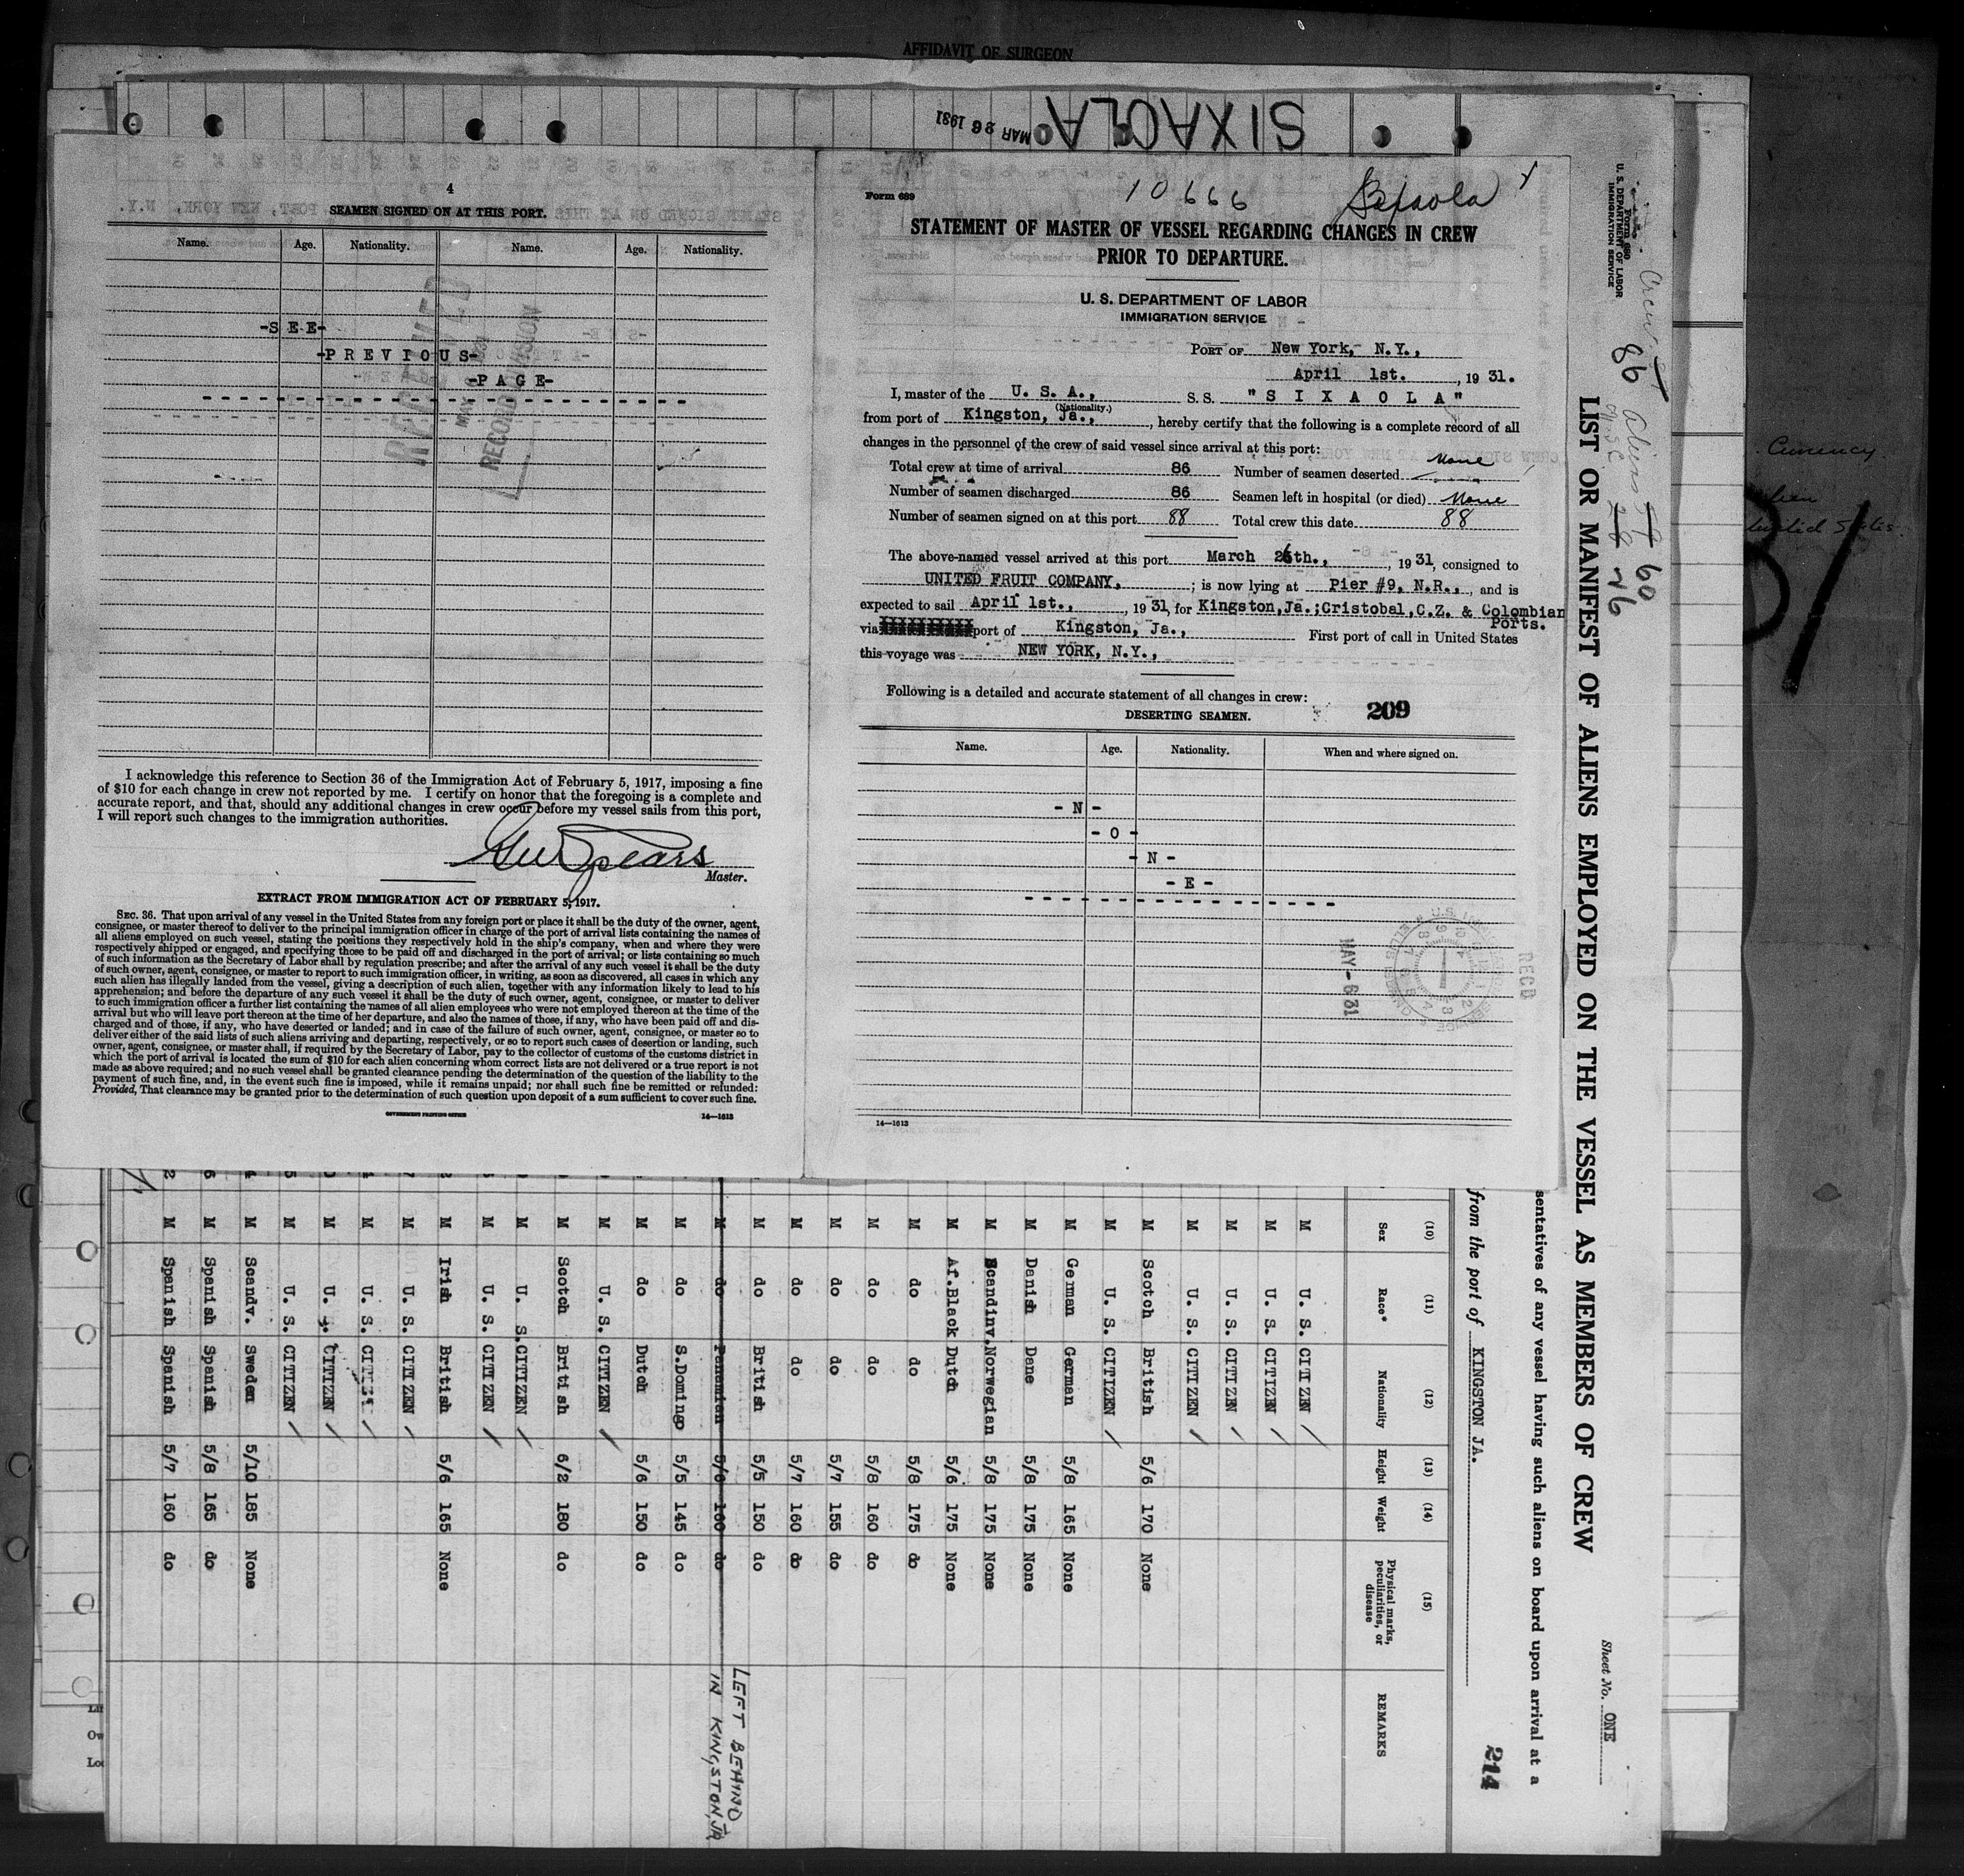 AFFIDAVIT OF SURGEON
SIXAOLA
MAR 26 1931
4
SEAMEN SIGNED ON AT THIS PORT.
Name. Age. Nationality. Name. Age. Nationality.
-S E E-
-P R E V I O U S-
-P A G E-
RECORD DIVISION
I acknowledge this reference to Section 36 of the Immigration Act of February 5, 1917, imposing a fine
of $10 for each change in crew not reported by me. I certify on honor that the foregoing is a complete and
accurate report, and that, should any additional changes in crew occur before my vessel sails from this port,
I will report such changes to the immigration authorities.
Master.
EXTRACT FROM IMMIGRATION ACT OF FEBRUARY 5, 1917.
SEC. 36. That upon arrival of any vessel in the United States from any foreign port or place it shall be the duty of the owner, agent,
consignee, or master thereof to deliver to the principal immigration officer in charge of the port of arrival lists containing the names of
all aliens employed on such vessel, stating the positions they respectively hold in the ship's company, when and where they were
respectively shipped or engaged, and specifying those to be paid off and discharged in the port of arrival; or lists containing so much
of such information as the Secretary of Labor shall by regulation prescribe; and after the arrival of any such vessel it shall be the duty
of such owner, agent, consignee, or master to report to such immigration officer, in writing, as soon as discovered, all cases in which any
such alien has illegally landed from the vessel, giving a description of such alien, together with any information likely to lead to his
apprehension; and before the departure of any such vessel it shall be the duty of such owner, agent, consignee, or master to deliver
to such immigration officer a further list containing the names of all alien employees who were not employed thereon at the time of the
arrival but who will leave port thereon at the time of her departure, and also the names of those, if any, who have been paid off and dis-
charged and of those, if any, who have deserted or landed; and in case of the failure of such owner, agent, consignee, or master so to
deliver either of the said lists of such aliens arriving and departing, respectively, or so to report such cases of desertion or landing, such
owner, agent, consignee, or master shall, if required by the Secretary of Labor, pay to the collector of customs of the customs district in
which the port of arrival is located the sum of $10 for each alien concerning whom correct lists are not delivered or a true report is not
made as above required; and no such vessel shall be granted clearance pending the determination of the question of the liability to the
payment of such fine, and, in the event such fine is imposed, while it remains unpaid; nor shall such fine be remitted or refunded:
Provided, That clearance may be granted prior to the determination of such question upon deposit of a sum sufficient to cover such fine.
GOVERNMENT PRINTING OFFICE 14—1613
Form 689
10666 Sixaola
STATEMENT OF MASTER OF VESSEL REGARDING CHANGES IN CREW
PRIOR TO DEPARTURE.
U. S. DEPARTMENT OF LABOR
IMMIGRATION SERVICE
PORT OF New York, N.Y.,
April 1st. , 19 31.
I, master of the U. S. A., S.S. "S I X A O L A"
(Nationality.)
from port of Kingston, Ja., , hereby certify that the following is a complete record of all
changes in the personnel of the crew of said vessel since arrival at this port:
Total crew at time of arrival 86 Number of seamen deserted None
Number of seamen discharged 86 Seamen left in hospital (or died) None
Number of seamen signed on at this port 88 Total crew this date 88
The above-named vessel arrived at this port March 26th., , 19 31, consigned to
UNITED FRUIT COMPANY, ; is now lying at Pier #9, N.R., , and is
expected to sail April 1st., , 19 31, for Kingston,Ja.;Cristobal,C.Z. & Colombian
Ports.
via port of Kingston, Ja., First port of call in United States
this voyage was NEW YORK, N.Y.,
Following is a detailed and accurate statement of all changes in crew:
209
DESERTING SEAMEN.
Name. Age. Nationality. When and where signed on.
- N -
- O -
- N -
- E -
MAY - 6 31
RECD
14—1613
Form 680
U. S. DEPARTMENT OF LABOR
IMMIGRATION SERVICE
Crew 86 Aliens 60
26
LIST OR MANIFEST OF ALIENS EMPLOYED ON THE VESSEL AS MEMBERS OF CREW
Sheet No. ONE
sentatives of any vessel having such aliens on board upon arrival at a
from the port of KINGSTON JA.
214
(10) (11) (12) (13) (14) (15)
Sex Race* Nationality Height Weight Physical marks, peculiarities, or disease REMARKS
M U. S. CITIZEN
M U. S. CITIZEN
M U. S. CITIZEN
M U. S. CITIZEN
M Scotch British 5/6 170 None
M U. S. CITIZEN
M German German 5/8 165 None
M Danish Dane 5/8 175 None
M Scandinv. Norwegian 5/8 175 None
M Af.Black Dutch 5/6 175 None
M do do 5/8 175 do
M do do 5/8 160 do
M do do 5/7 155 do
M do do 5/7 160 do
M do British 5/5 150 do
M do Panamian 5/6 160 do LEFT BEHIND IN KINGSTON, JA
M do S.Domingo 5/5 145 do
M do Dutch 5/6 150 do
M U. S. CITIZEN
M Scotch British 6/2 180 do
M U. S. CITIZEN
M U. S. CITIZEN
M Irish British 5/6 165 None
M U. S. CITIZEN
M U. S. CITIZEN
M U. S. CITIZEN
M U. S. CITIZEN
M Scandv. Sweden 5/10 185 None
M Spanish Spanish 5/8 165 do
M Spanish Spanish 5/7 160 do
Currency